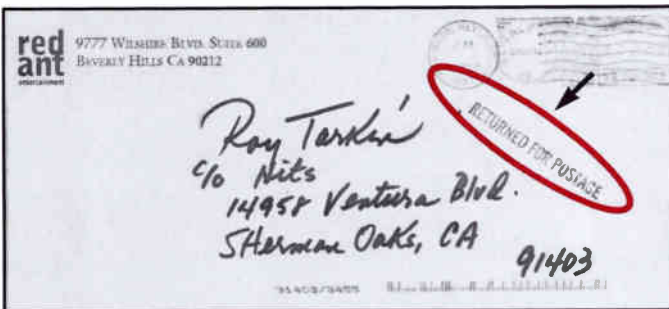 red
ant
entertainment
9777 WILSHIRE BLVD. SUITE 600
BEVERLY HILLS CA 90212
RETURNED FOR POSTAGE
Roy Tarkin
c/o Hits
14958 Ventura Blvd.
SHerman Oaks, CA
91403